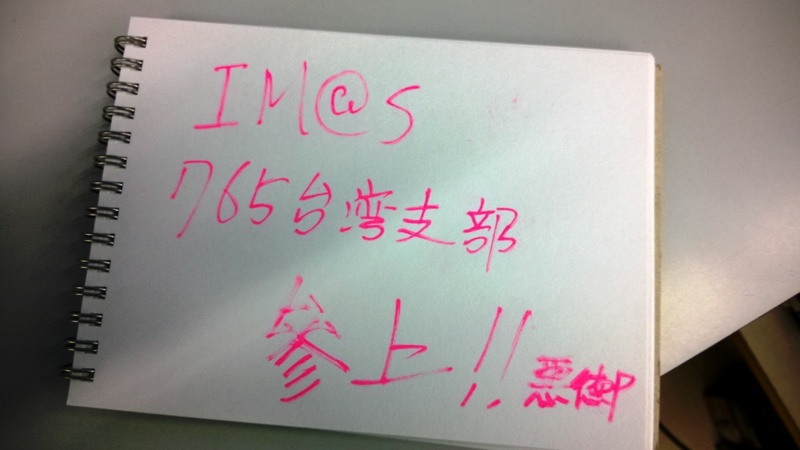 IM@S
765台湾支部
参上!!
悪御